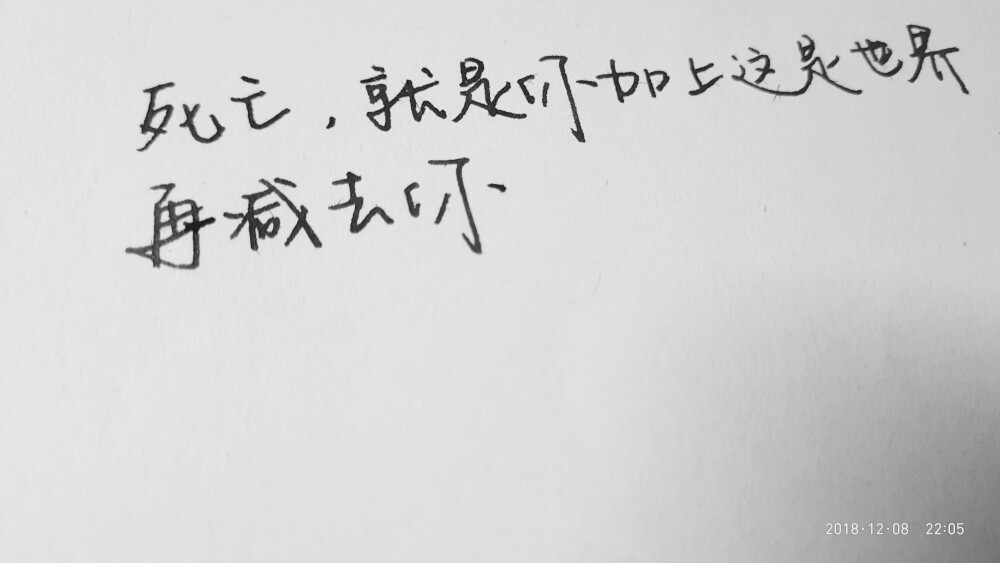 死亡，就是你加上这是世界
再减去你
2018·12·08 22:05